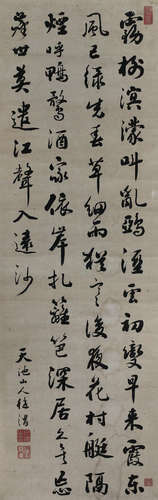 霧樹溟濛叫亂鴉濕雲初變早來霞東
風已綠先春草細雨猶寒後夜花村艇隔
煙呼鴨鶩酒家依岸扎籬笆深居久矣忘
塵世莫遣江聲入遠沙
天池山人徐渭